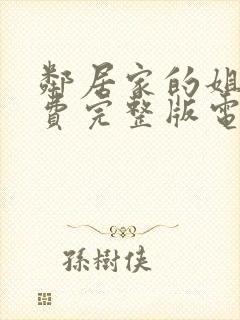 鄰居家的姐
費完整版電
孫樹俠